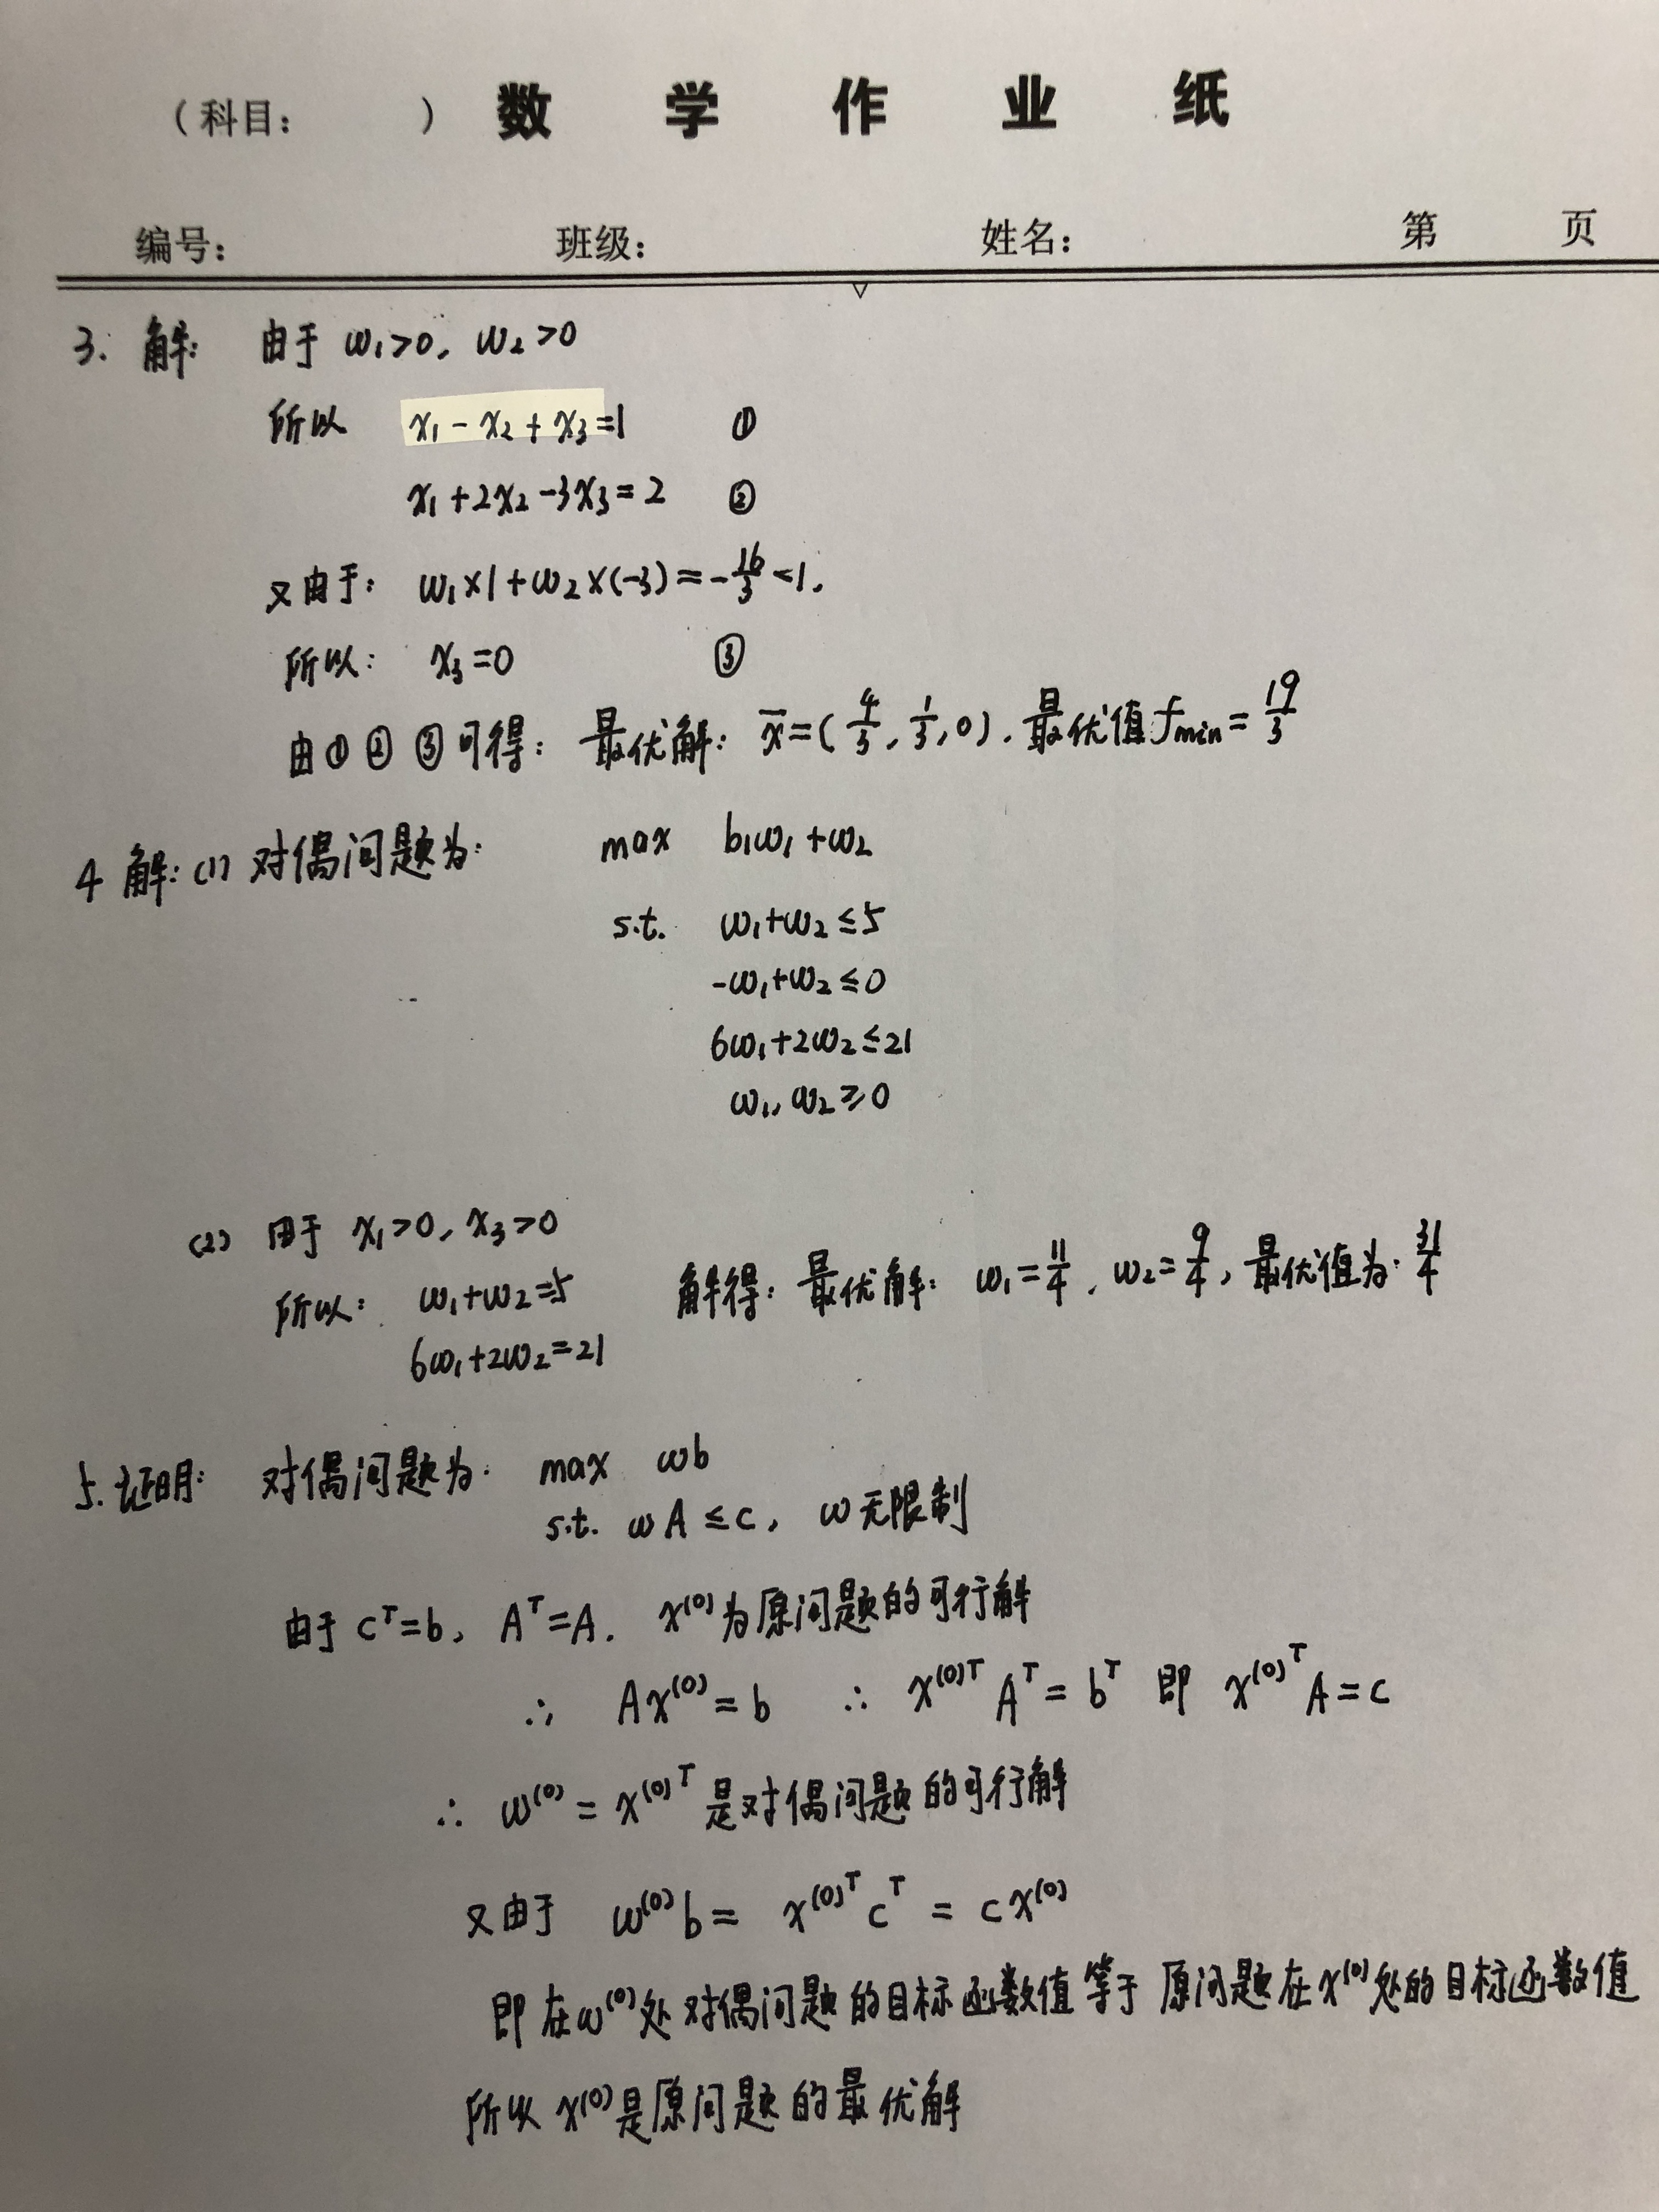 （科目：　　　） 数 学 作 业 纸
编号： 班级： 姓名： 第 页
3. 解: 由于 ω₁>0, ω₂>0
所以 x₁-x₂+x₃=1 ①
x₁+2x₂-3x₃=2 ②
又由于: ω₁×1+ω₂×(-3)=-16/3<1,
所以: x₃=0 ③
由①②③可得: 最优解: x̄=(4/3, 1/3, 0). 最优值 fmin=19/3
4 解: (1) 对偶问题为: max b₁ω₁+ω₂
s.t. ω₁+ω₂≤5
-ω₁+ω₂≤0
6ω₁+2ω₂≤21
ω₁, ω₂≥0
(2) 由于 x₁>0, x₃>0
所以: ω₁+ω₂=5 解得: 最优解: ω₁=11/4, ω₂=9/4, 最优值为: 31/4
6ω₁+2ω₂=21
5. 证明: 对偶问题为: max ωb
s.t. ωA≤c, ω无限制
由于 cᵀ=b, Aᵀ=A. x⁽⁰⁾为原问题的可行解
∴ Ax⁽⁰⁾=b ∴ x⁽⁰⁾ᵀAᵀ=bᵀ 即 x⁽⁰⁾ᵀA=c
∴ ω⁽⁰⁾=x⁽⁰⁾ᵀ是对偶问题的可行解
又由于 ω⁽⁰⁾b= x⁽⁰⁾ᵀcᵀ = cx⁽⁰⁾
即在ω⁽⁰⁾处对偶问题的目标函数值等于原问题在x⁽⁰⁾处的目标函数值
所以x⁽⁰⁾是原问题的最优解